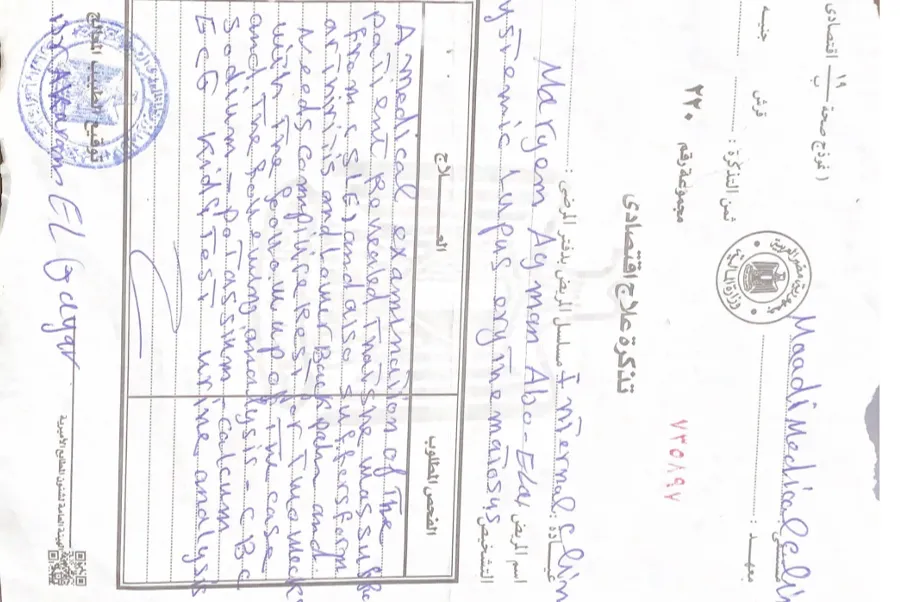 ( نموذج صحة ١٩ ب اقتصادى
جنيه قرش
ثمن التذكرة :
مجموعة رقم ٢٢٠
جمهورية مصر العربية
وزارة المالية
Maadi Medical
مستشفى
بمعهد :
٧٣٥٨٩٧
تذكرة علاج اقتصادى
مسلسل المريض بدفتر المرضى :
عيادة : Internal clin
اسم المريض Maryem Ayman Abo-Elai
التشخيص ystemic Lupus erythematosus
العـــلاج
الفحص المطلوب
A medical examination of the
patient Revealed that she was suffe
from (SLE) and also suffers form
arthritis and lower Back pain and
Needs complite Rest for two week
with the follow up of the case
and the following analysis - c Bc
Sodium - potassium - calcum
EcG kidf Test urine analysis
توقيع الطبيب المعالج
Dr Akaram EL Gayar
الهيئة العامة لشئون المطابع الأميرية